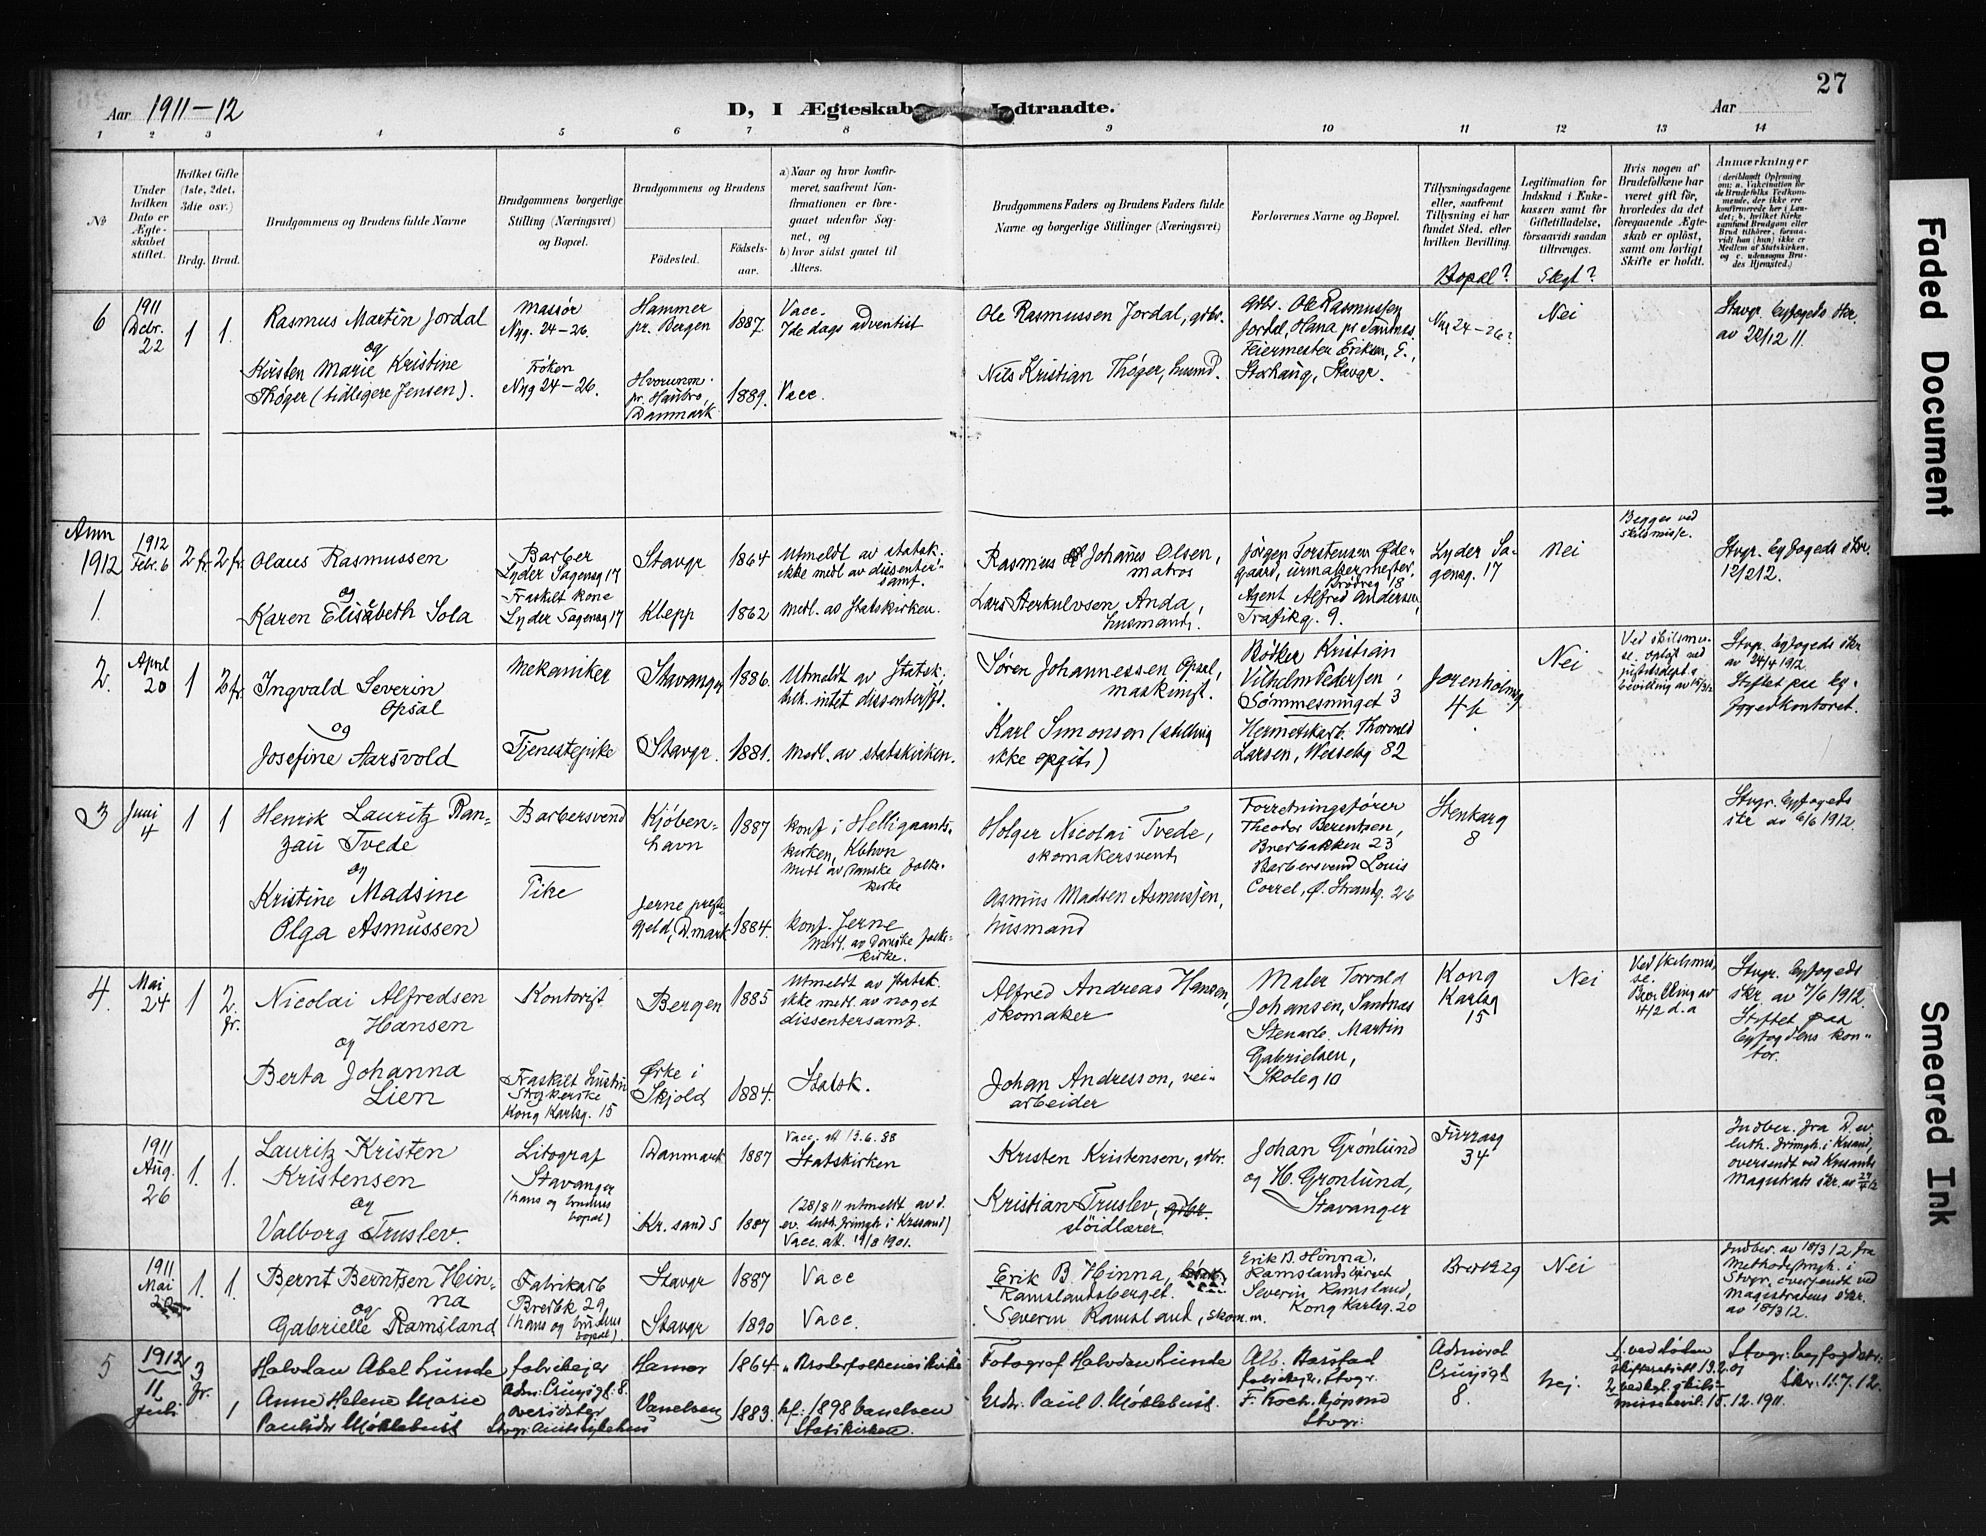 27
Aar 1911–12
D, I Ægteskab Indtraadte.
Aar
1 2 3 4 5 6 7 8 9 10 11 12 13 14
No
Under hvilken Dato er Ægteskabet stiftet.
Hvilket Gifte (1ste, 2det, 3die osv.)
Brdg. Brud.
Brudgommens og Brudens fulde Navne
Brudgommens borgerlige Stilling (Næringsvei) og Bopæl.
Brudgommens og Brudens
Fødested.
Fødsels-aar.
a) Naar og hvor konfirmeret, saafremt Konfirmationen er foregaaet udenfor Sognet, og
b) hvor sidst gaaet til Alters.
Brudgommens Faders og Brudens Faders fulde Navne og borgerlige Stillinger (Næringsvei)
Forlovernes Navne og Bopæl.
Tillysningsdagene eller, saafremt Tillysning ei har fundet Sted, efter hvilken Bevilling.
Bopæl?
Legitimation for Indskud i Enkekassen samt for Giftetilladelse, forsaavidt saadan tiltrænges.
Slegt?
Hvis nogen af Brudefolkene har været gift før, hvorledes da det foregaaende Ægteskab er opløst, samt om lovligt Skifte er holdt.
Anmærkninger (deriblandt Oplysning om: a. Vakcination for de Brudefolks Vedkommende, der ikke ere konfirmerede her i Landet; b. hvilket Kirkesamfund Brudgom eller Brud tilhører, forsaavidt han (hun) ikke er Medlem af Statskirken, og c. udensogns Brudes Hjemsted.)
6
1911 Decbr. 22
1 1
Rasmus Martin Jordal
og
Kirsten Marie Kristine
Thøger (tidligere Jensen).
Massør
Nyg. 24–26.
Frøken
Nyg 24–26.
Hammer
pr. Bergen
1887.
Danmark
1889.
Vacc.
7de dags adventist
Vacc.
Ole Rasmussen Jordal, grbr.
Nils Kristian Thøger, husmd.
grbr. Ole Rasmussen
Jordal, Hana pr Sandnes
Feiermester Eriksen, E.,
Storhaug, Stavgr.
Nyg 24–26?
Nei
Stavgr. byfogeds skr.
av 22/12 11.
Anm
1912
1.
1912
Febr. 6
2 fr. 2 fr.
Olaus Rasmussen
og
Karen Elisabeth Sola
Barber
Lyder Sagensg 17
Fraskilt kone
Lyder Sagensg 17
Stavgr
1864
Klepp
1862
Utmeldt av statsk.
ikke medl av dissenter
samf.
Medl. av Statskirken.
Rasmus Johannes Olsen,
matros
Lars Aerkulvsen Anda,
husmand.
Jørgen Torstensen Øde-
gaard, urmakermester,
Brødreg 18
Agent Alfred Andersen
Trafikg. 9.
Lyder Sa-
gensg. 17
Nei
Begges ved
skilsmisse.
Stvgr. byfogeds skr.
12/2 12.
2.
April
20
1 2 fr.
Ingvald Severin
Opsal
og
Josefine Aarsvold
Mekaniker
Tjenestepike
Stavanger
1886.
Stavgr.
1881.
Utmeldt av Statsk.
tilh. intet dissentersf.
Medl. av statskirken.
Søren Johannessen Opsal,
maskinist.
Karl Simonsen (stilling
ikke opgit)
Bødker Kristian
Vilhelm Pedersen,
Sømmesmuget 3
Hermetikarb. Thorvald
Larsen, Wesselsg 82
Jorenholmsg
4
Nei
Ved skilsmis-
se. opløst ved
justitsdept.s
bevilling av 15/3 12
Stvgr. byfogeds skr
av 24/4 1912
Stiftet paa by-
fogedkontoret.
3
Juni
4
1 1
Henrik Lauritz Ran-
zau Tvede
og
Kristine Madsine
Olga Asmussen
Barbersvend
Pike
Kjøben-
havn
1887
Jerne preste-
gjeld, D.mark
1884.
Konf i Helligaands-
kirken, Kbhvn
Medl av Danske folke-
kirke
Konf. Jerne
Medl. av Danske folke-
kirke.
Holger Nicolai Tvede,
skomakersvend
Asmus Madsen Asmussen,
husmand
Forretningsfører
Theodor Berentsen,
Breibakken 23
Barbersvend Louis
Correl, Ø. Strandg. 26
Stenkarg
8
Stvgr. byfogeds
skr av 6/6 1912.
4.
Mai
24
1 2. fr.
Nicolai Alfredsen
Hansen
og
Berta Johanna
Lien
Kontorist
Fraskilt hustru
Strykerske
Kong Karlsg. 15
Bergen
1885
Ørke i
Skjold
1884.
Utmeldt av statsk.
ikke medl. av noget
dissentersamf.
Statsk.
Alfred Andreas Hansen,
skomaker
Johan Andresson, vei-
arbeider
Maler Torvald
Johansen, Sandnæs
Stenarb. Martin
Gabrielsen,
Skoleg 10
Kong
Karlsg
15
Nei
Ved skilsmis-
se.
Bevilling av
4/2 d.a
Stvgr. byfogeds
skr. av 7/6 1912.
Stiftet paa
byfogdens kon-
tor.
1911
Aug.
26
1. 1.
Lauritz Kristen
Kristensen
og
Valborg Truslev.
Litograf
Stavanger
(hans og brudens
bopæl)
Danmark
1887
Kr. sand S
1887
Vacc. att 13.6.88
Statskirken
(28/8 11 utmeldt av d.
ev. luth. frimgh. i Krsand)
Vacc. att. 19/8 1901.
Kristen Kristensen, grbr.
Kristian Truslev, grbr.
sløidlærer
Johan Grønlund
og H. Grønlund,
Stavanger
Furrasg
34
Indber. fra D. ev.
luth. frimgh. i Krsand,
oversendt ved Krsands
Magistrats skr. av
1911
Mai
1. 1.
Bernt Berntsen Hin-
na
og
Gabrielle Ramsland
Fabrikarb
Breibk 29
(hans og brudens
bopæl)
Stavgr
1887
Stavgr
1890
Vacc
Vacc.
Erik B. Hinna,
Ramslandsberget.
Severin Ramsland, skom.m.
Erik B. Hinna,
Ramslandsberget
Severin Ramsland,
Kong Karlsg. 20
Breibk 29
Nei
Indber. av 18/3 12 fra
Methodistmgh. i
Stvgr. oversendt ved
Magistratens skr.
av 18/3 12.
5
1912
11
Juli
3 fr. 1
Halvdan Abel Lunde
Anne Helene Marie
Paulsdr Møklebust
fabrikejer
Adm: Crusisgt. 8.
oversøster
Stvgr: Amtssykehus
Hamar
1864
Vanelven
1883.
Broderfolkenes kirke
kf: 1898 Vanelven
Statskirken.
Fotograf Halvdan Lunde
Grdr. Paul O. Møklebust.
Alb. Aarstad
fabrikejer, Stvgr.
F. Koch. kjøpmd
Stvgr:
Admiral
Crusisgt
8.
Nej.
1. ved døden
skifteattest 13.2.07
2 ved kgl. skils-
missebevil. 15.12.1911.
Stvgr: byfogds
skr. 11.7.12.
Faded Document
Smeared Ink